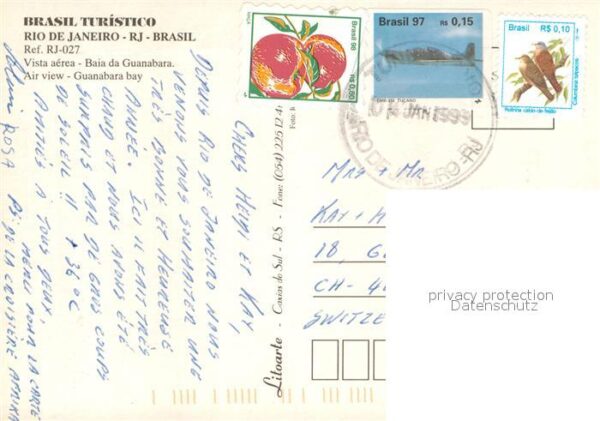 BRASIL TURÍSTICO
RIO DE JANEIRO - RJ - BRASIL
Ref. RJ-027
Vista aérea - Baia da Guanabara.
Air view - Guanabara bay
CHERS HEIDI ET KAY,
DEPUIS RIO DE JANEIRO NOUS
VENONS VOUS SOUHAITER UNE
TRÈS BONNE ET HEUREUSE
ANNÉE. ICI IL FAIT TRÈS
CHAUD ET NOUS AVONS ÉTÉ
SURPRIS PAR DE GROS COUPS
DE SOLEIL !! + 36 0C
AMITIÉS À TOUS DEUX,
ROSA
MERCI POUR LA CARTE
DE LA CROISIÈRE AFRIKA
Litoarte - Caxias do Sul - RS - Fone: (054) 225 12 4
Foto:
Brasil 98
R$ 0,80
Brasil 97 R$ 0,15
Brasil 98
R$ 0,10
Columbina talpacoti
Rolinha caldo-de-feijão
JAN 1999
RIO DE JANEIRO - RJ
MRS + MR
KAY + H
18, G
CH - 4
SWITZE
privacy protection
Datenschutz